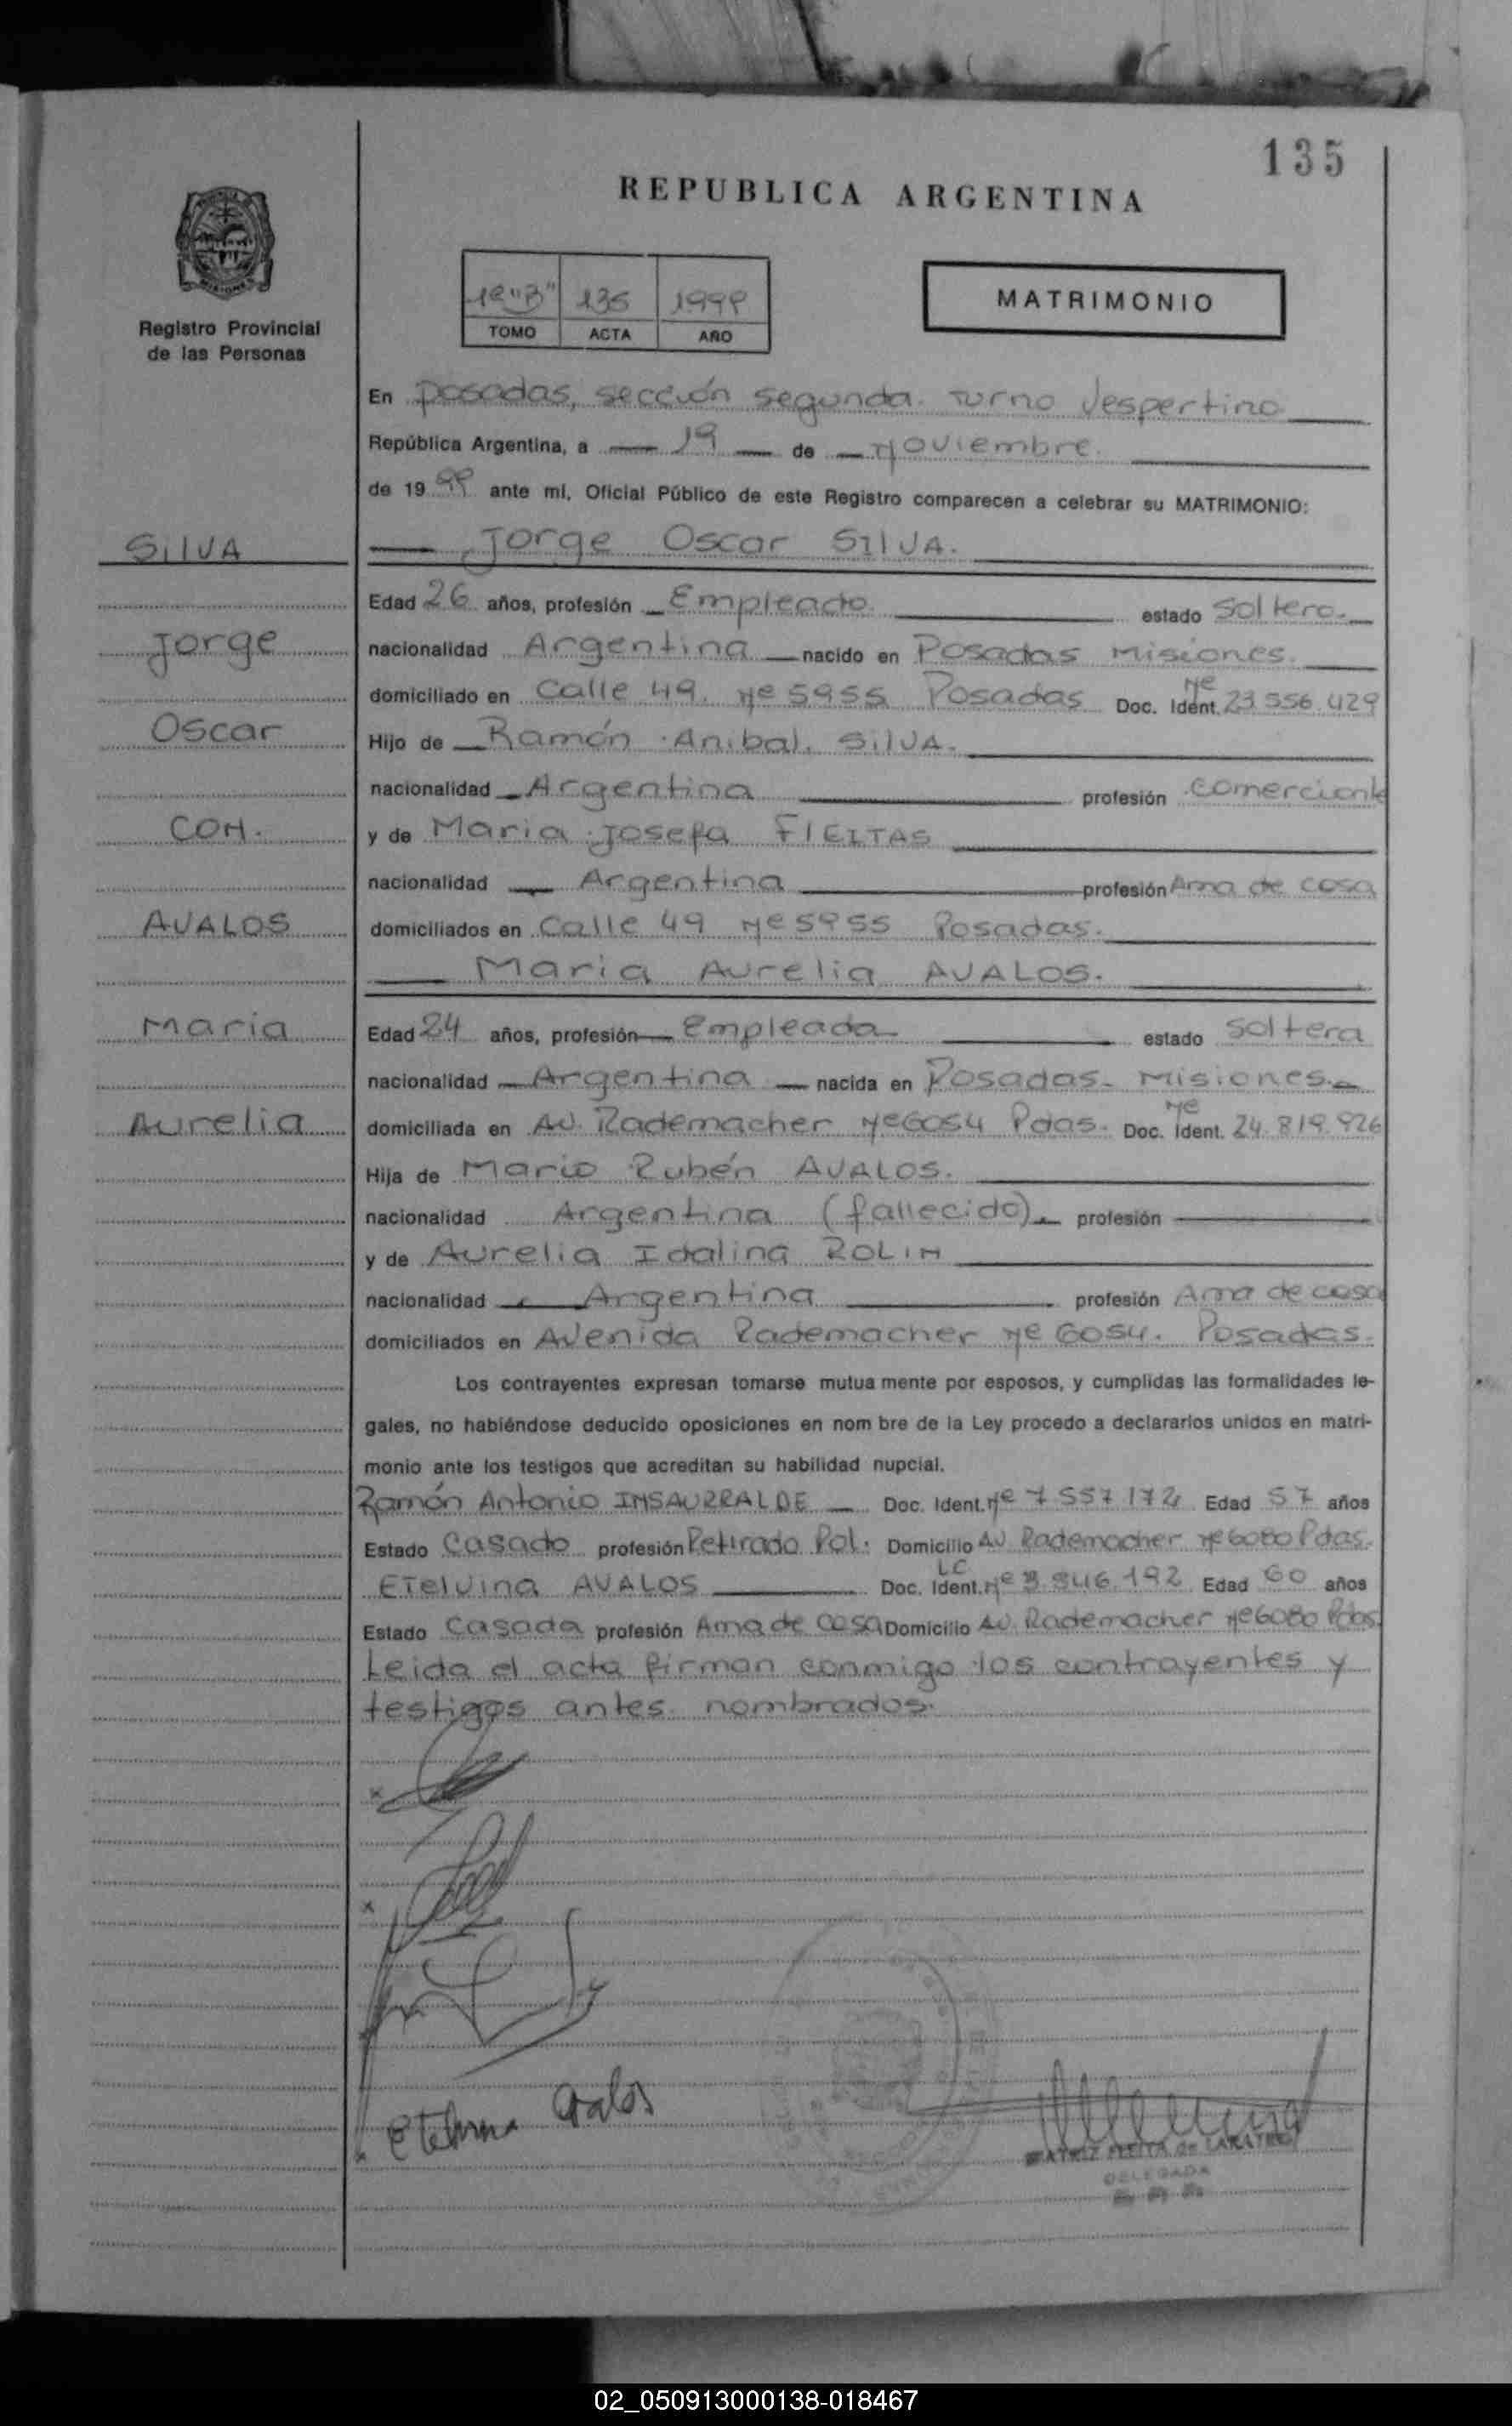 135
REPUBLICA ARGENTINA
1º "B" 135 1999
TOMO ACTA AÑO
MATRIMONIO
Registro Provincial
de las Personas
En Posadas, sección segunda. Turno Vespertino
República Argentina, a 19 de Noviembre.
de 1999 ante mí, Oficial Público de este Registro comparecen a celebrar su MATRIMONIO:
SILVA
Jorge Oscar SILVA.
Edad 26 años, profesión Empleado estado Soltero.
Jorge
nacionalidad Argentina nacido en Posadas Misiones.
domiciliado en Calle 49. Nº 5955 Posadas Doc. Ident. Nº 23.556.429
Oscar
Hijo de Ramón Anibal. SILVA.
nacionalidad Argentina profesión Comerciante
CON.
y de Maria Josefa FLEITAS
nacionalidad Argentina profesión Ama de casa
AVALOS
domiciliados en Calle 49 Nº 5955 Posadas.
Maria Aurelia AVALOS.
Maria
Edad 24 años, profesión Empleada estado Soltera
nacionalidad Argentina nacida en Posadas. Misiones.
Aurelia
domiciliada en Av. Rademacher Nº 6054 Pdas. Doc. Ident. Nº 24.819.926
Hija de Mario Rubén AVALOS.
nacionalidad Argentina (fallecido) profesión
y de Aurelia Idalina ROLIN
nacionalidad Argentina profesión Ama de casa
domiciliados en Avenida Rademacher Nº 6054. Posadas.
Los contrayentes expresan tomarse mutua mente por esposos, y cumplidas las formalidades le-
gales, no habiéndose deducido oposiciones en nom bre de la Ley procedo a declararlos unidos en matri-
monio ante los testigos que acreditan su habilidad nupcial.
Ramón Antonio INSAURRALDE Doc. Ident. Nº 7.557.172 Edad 57 años
Estado Casado profesión Retirado Pol. Domicilio Av. Rademacher Nº 6080 Pdas.
Etelvina AVALOS Doc. Ident. LC Nº 3.946.192 Edad 60 años
Estado Casada profesión Ama de casa Domicilio Av. Rademacher Nº 6080 Pdas.
Leida el acta firman conmigo los contrayentes y
testigos antes nombrados.
Etelvina Avalos
DELEGADA
02_050913000138-018467